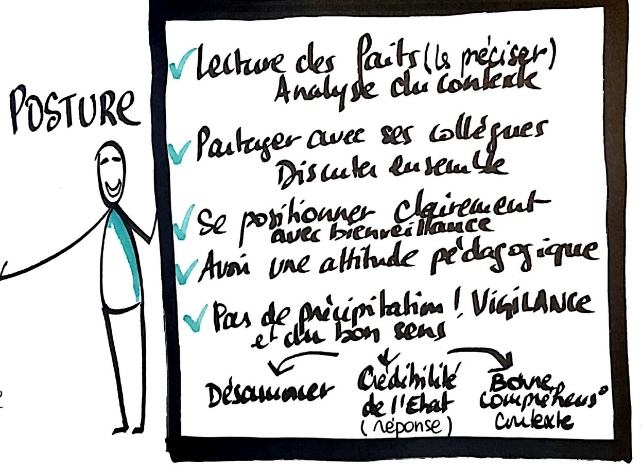 POSTURE
Lecture des faits (les préciser)
Analyse du contexte
Partager avec ses collègues
Discuter ensemble
Se positionner clairement
avec bienveillance
Avoir une attitude pédagogique
Pas de précipitation ! VIGILANCE
et du bon sens
Désamorcer
Crédibilité
de l'Etat
(réponse)
Bonne
compréhens°
contexte